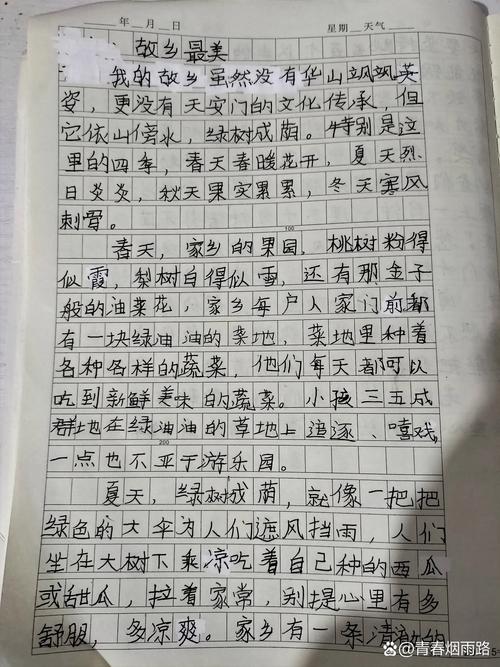 年 月 日 星期 天气
故乡最美
我的故乡虽然没有华山飒飒英
姿，更没有天安门的文化传承，但
它依山傍水，绿树成荫。特别是这
里的四季，春天春暖花开，夏天烈
日炎炎，秋天果实累累，冬天寒风
刺骨。
100
春天，家乡的果园，桃树粉得
似霞，梨树白得似雪，还有那金子
般的油菜花，家乡每户人家门前都
有一块绿油油的菜地，菜地里种着
各种各样的蔬菜，他们每天都可以
吃到新鲜美味的蔬菜。小孩三五成
群地在绿油油的草地上追逐、嘻戏，
200
一点也不亚于游乐园。
夏天，绿树成荫，就像一把把
绿色的大伞为人们遮风挡雨，人们
坐在大树下乘凉吃着自己种的西瓜
或甜瓜，拉着家常，别提心里有多
舒服，多凉爽。家乡有一条清澈的
青春烟雨路